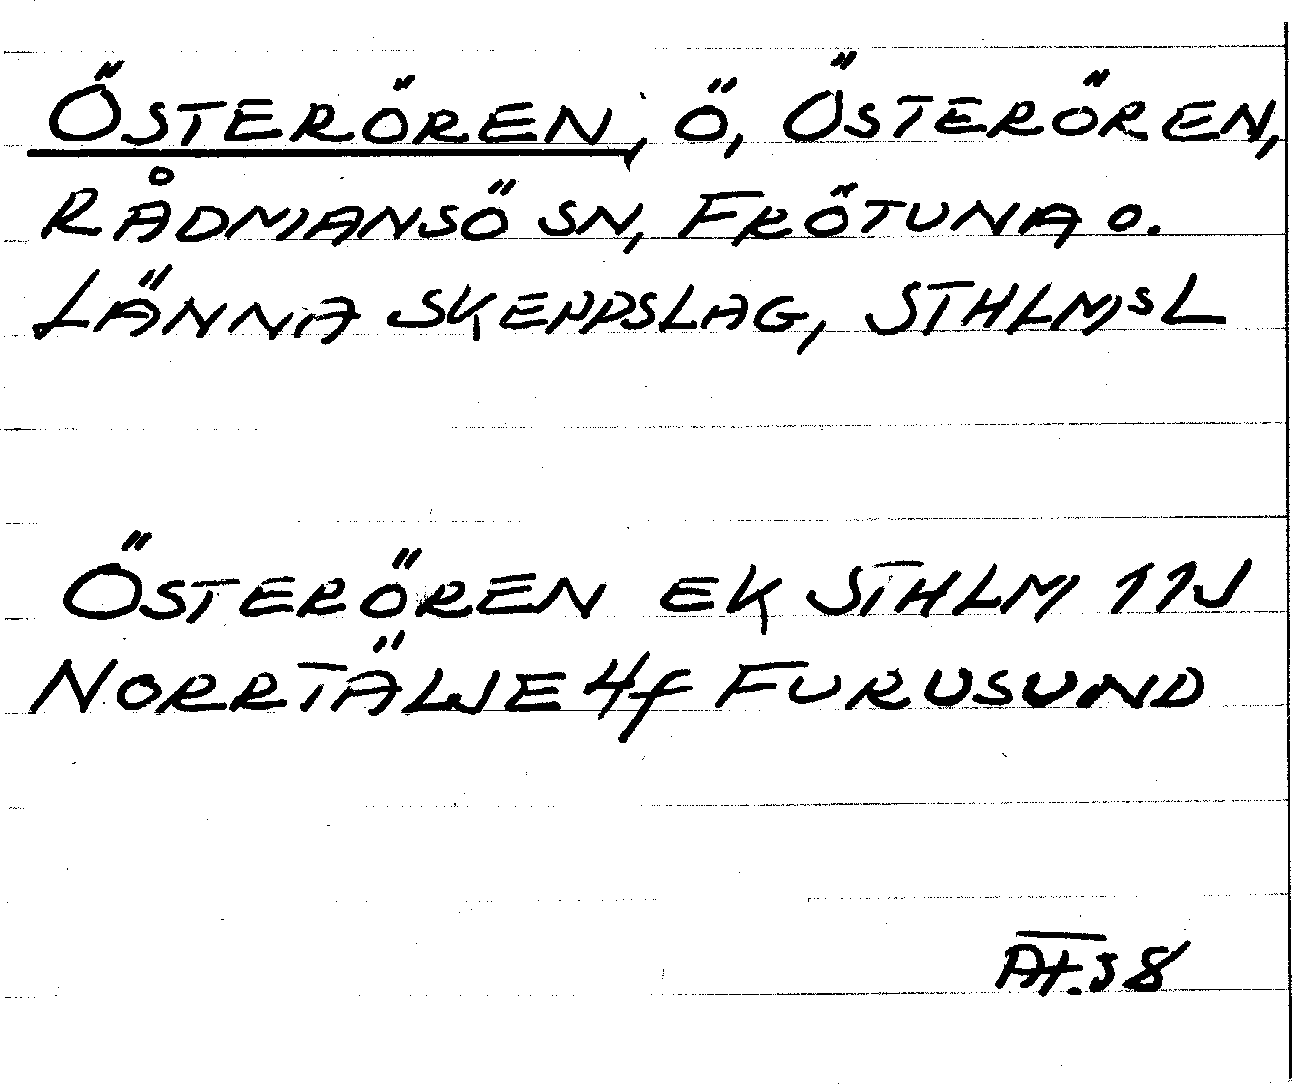 ÖSTERÖREN, Ö, ÖSTERÖREN,
RÅDMANSÖ SN, FRÖTUNA O.
LÄNNA SKEPPSLAG, STHLMSL
ÖSTERÖREN EK STHLM 11J
NORRTÄLJE 4f FURUSUND